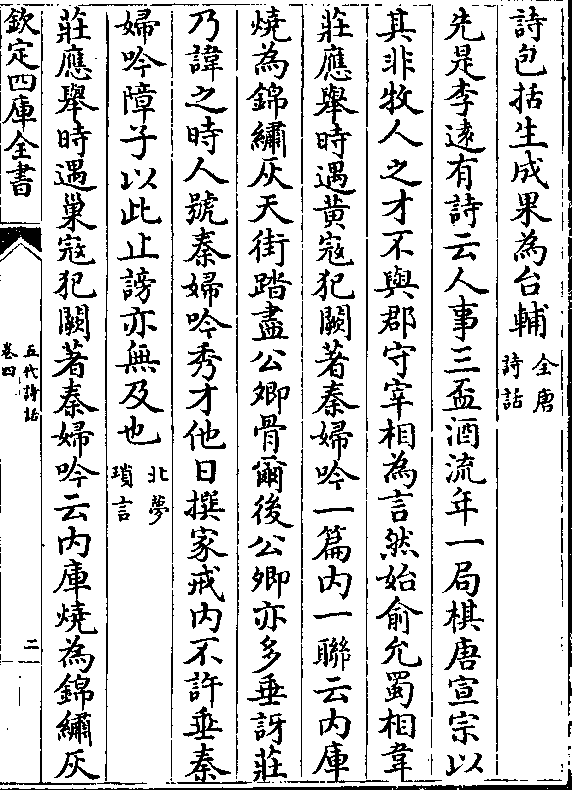 詩包括生成果為台輔全唐詩話
先是李遠有詩云人事三盃酒流年一局棋唐宣宗以
其非牧人之才不與郡守宰相為言然始俞允蜀相韋
莊應舉時遇黃寇犯闕著秦婦吟一篇内一聯云内庫
燒為錦繡灰天街踏盡公卿骨爾後公卿亦多垂訝莊
乃諱之時人號秦婦吟秀才他日撰家戒内不許垂秦
婦吟障子以此止謗亦無及也北夢瑣言
莊應舉時遇巢寇犯闕著秦婦吟云内庫燒為錦繡灰
欽定四庫全書
五代詩話
卷四
二